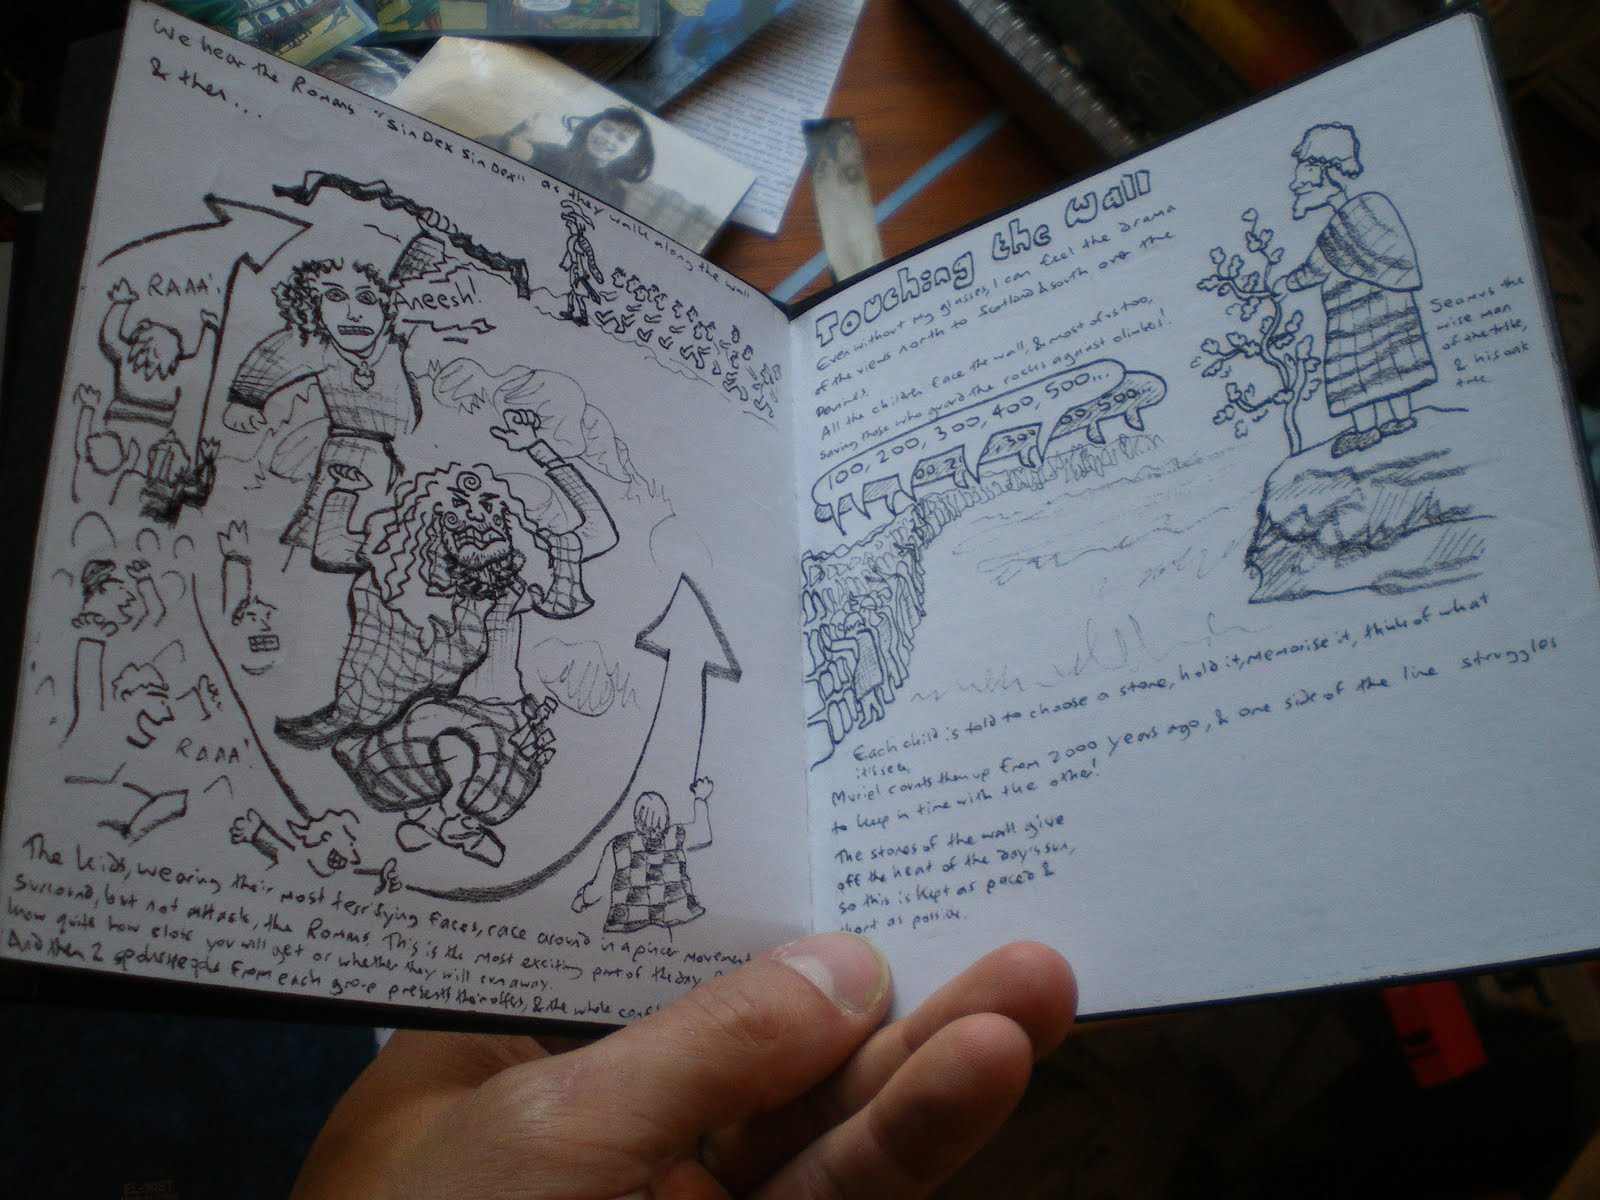 We hear the Romans "Sin Dex Sin Dex" as they walk along the wall
& then...
RAAA!
Aneesh!
RAAA!
The kids, wearing their most terrifying faces, race around in a pincer movement
surround, but not attack, the Romans. This is the most exciting part of the day
know quite how close you will get or whether they will run away.
And then 2 spokespeople from each group presents their offers, & the whole
Touching the Wall
Even without my glasses, I can feel the drama
of the views north to Scotland & south over the
Pennines.
All the children face the wall, & most of us too,
saving those who guard the rocks against climbers!
100, 200, 300, 400, 500...
Seamus the
wise man
of the tribe,
& his oak
tree.
Each child is told to choose a stone, hold it, memorise it, think of what
it's seen.
Muriel counts them up from 2000 years ago, & one side of the line struggles
to keep in time with the other!
The stones of the wall give
off the heat of the day's sun,
so this is kept as paced &
short as possible.